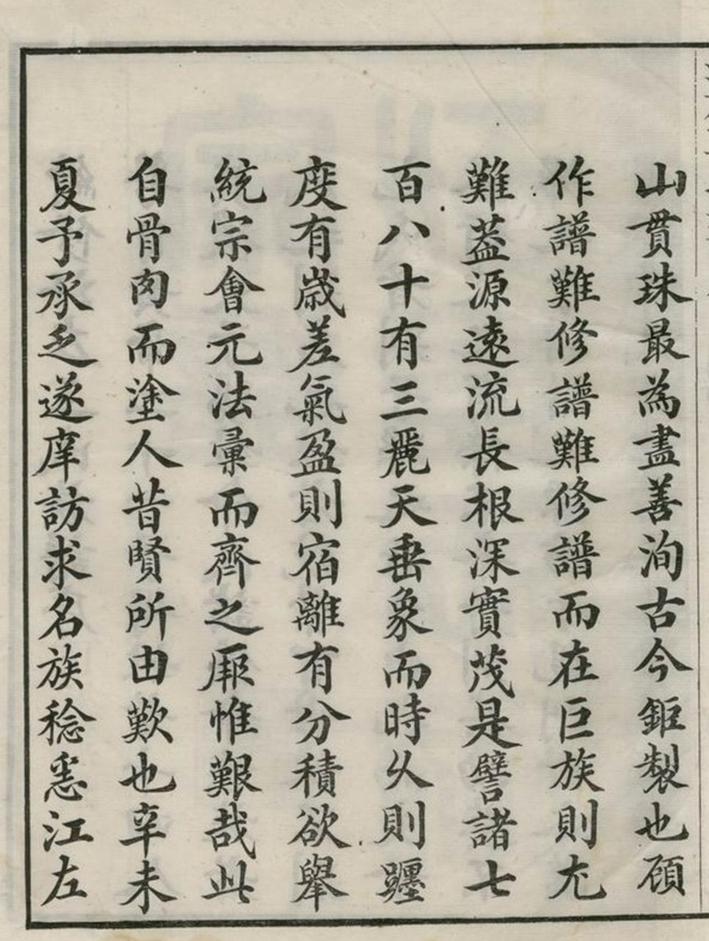 山貫珠最為盡善洵古今鉅製也顧
作譜難修譜難修譜而在巨族則尤
難葢源遠流長根深實茂是譬諸七
百八十有三麗天垂象而時乆則躔
度有嵗差氣盈則宿離有分積欲舉
統宗會元法彚而齊之厥惟艱哉此
自骨肉而塗人昔賢所由歎也辛未
夏予承乏遂庠訪求名族稔悉江左